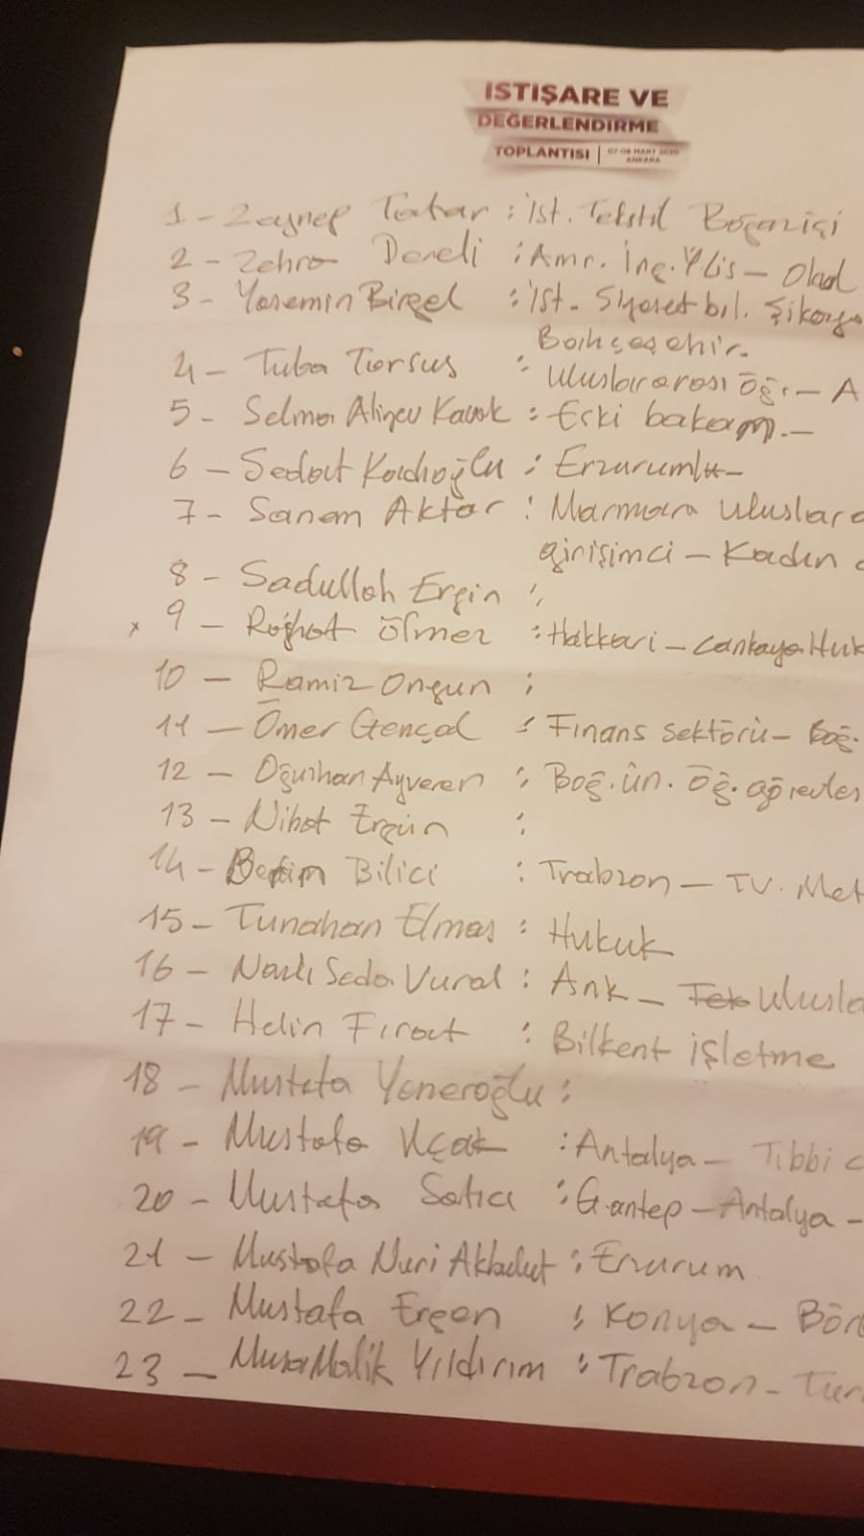 İSTİŞARE VE
DEĞERLENDİRME
TOPLANTISI | 07-08 MART 2020
ANKARA
1 - Zeynep Tatar : İst. Tekstil Boğaziçi
2 - Zehra Dereli : Amr. İng. Ylis - Okul
3 - Yasemin Birgel : İst. Siyaset bil. Şikago
Bahçeşehir.
4 - Tuba Torsus : Uluslararası Öğr. - A
5 - Selma Aliyev Kavak : Eski bakan. -
6 - Sedat Kadıoğlu : Erzurumlu -
7 - Sanem Aktar : Marmara uluslara
girişimci - Kadın
8 - Sadullah Ergin :
x 9 - Ölmez : Hakkari - Cankaya Huk
10 - Ramiz Ongun :
11 - Ömer Gençal : Finans Sektörü - Boğ.
12 - Oğuzhan Ayveren : Boğ. ün. Öğ.
13 - Nihat Ergün :
14 - Bilici : Trabzon - TV. Met
15 - Tunahan Elmas : Hukuk
16 - Nazlı Seda Vural : Ank - Tek Ulusla
17 - Helin Fırat : Bilkent işletme
18 - Mustafa Yeneroğlu :
19 - Mustafa Uçak : Antalya - Tıbbi c
20 - Mustafa Satıcı : G.antep - Antalya -
21 - Mustafa Nuri Akbulut : Erzurum
22 - Mustafa Ergen : Konya - Bör
23 - Musa Malik Yıldırım : Trabzon - Tur